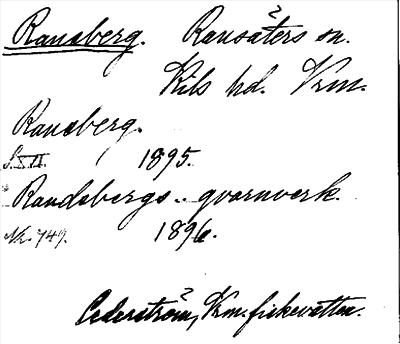 Ransberg. Ransäters sn.
Kils hd. Vrm.
Ransberg.
S. XVI. 1895.
Randsbergs qvarnverk.
Nr. 749. 1896.
Cederström, Vrm. fiskevatten.